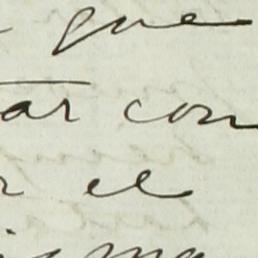 que
ar con
r el